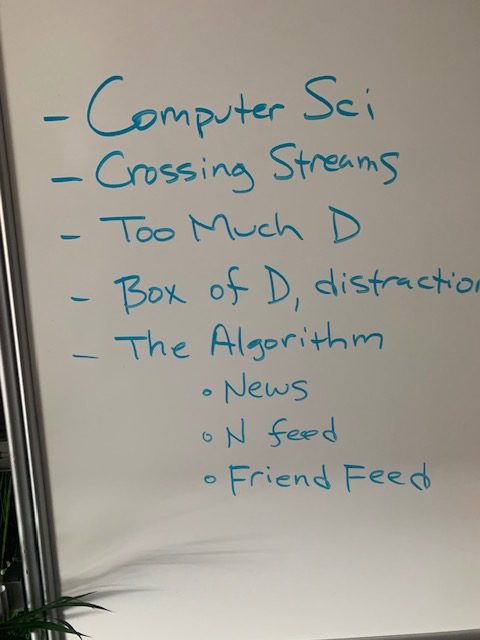 - Computer Sci
- Crossing Streams
- Too Much D
- Box of D, distraction
- The Algorithm
• News
• N feed
• Friend Feed